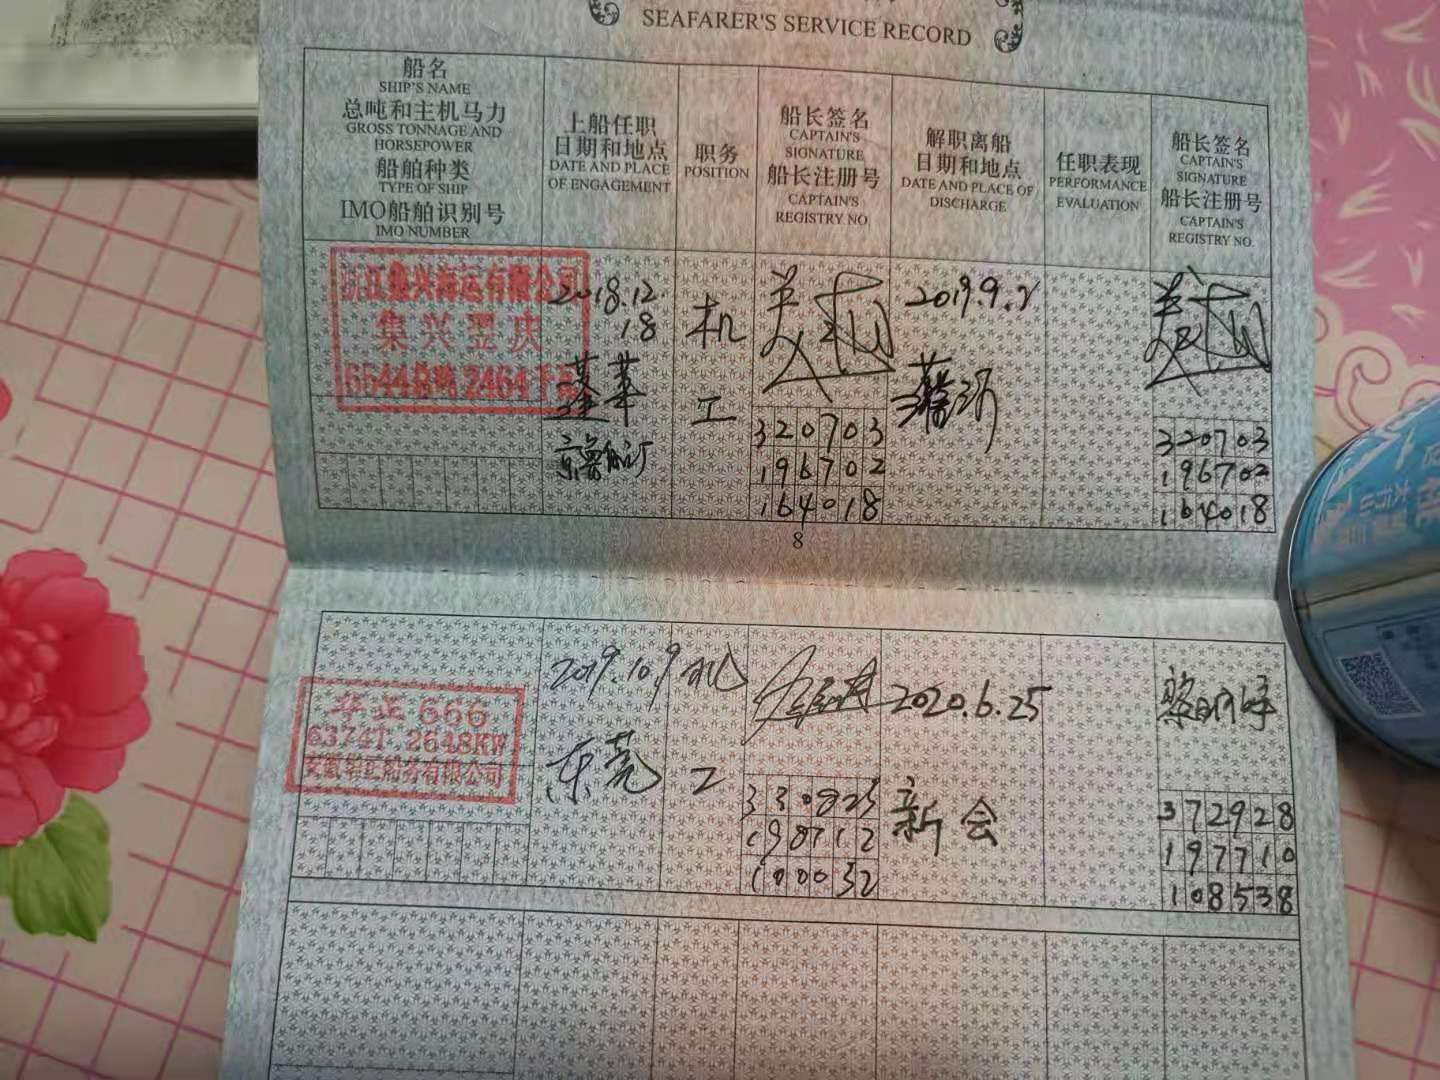 SEAFARER'S SERVICE RECORD
船名
SHIP'S NAME
总吨和主机马力
GROSS TONNAGE AND
HORSEPOWER
船舶种类
TYPE OF SHIP
IMO船舶识别号
IMO NUMBER
上船任职
日期和地点
DATE AND PLACE
OF ENGAGEMENT
职务
POSITION
船长签名
CAPTAIN'S
SIGNATURE
船长注册号
CAPTAIN'S
REGISTRY NO.
解职离船
日期和地点
DATE AND PLACE OF
DISCHARGE
任职表现
PERFORMANCE
EVALUATION
船长签名
CAPTAIN'S
SIGNATURE
船长注册号
CAPTAIN'S
REGISTRY NO.
浙江集兴海运有限公司
集兴翌庆
2018.12.
18
蓬莱
京鲁船厂
机
工
320703
196702
164018
2019.9.2
320703
196702
164018
8
华正 666
6374T 2648KW
安徽华正船务有限公司
2019.10.9
东莞
机
工
198712
2020.6.25
新会
372928
197710
108538